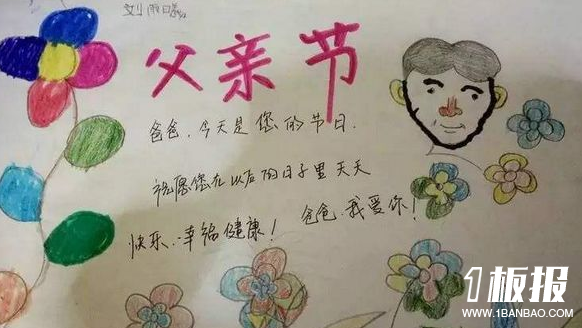 父亲节
爸爸,今天是您的节日.
祝愿您在以后的日子里天天
快乐.幸福健康! 爸爸.我爱你!
1板报
WWW.1BANBAO.COM